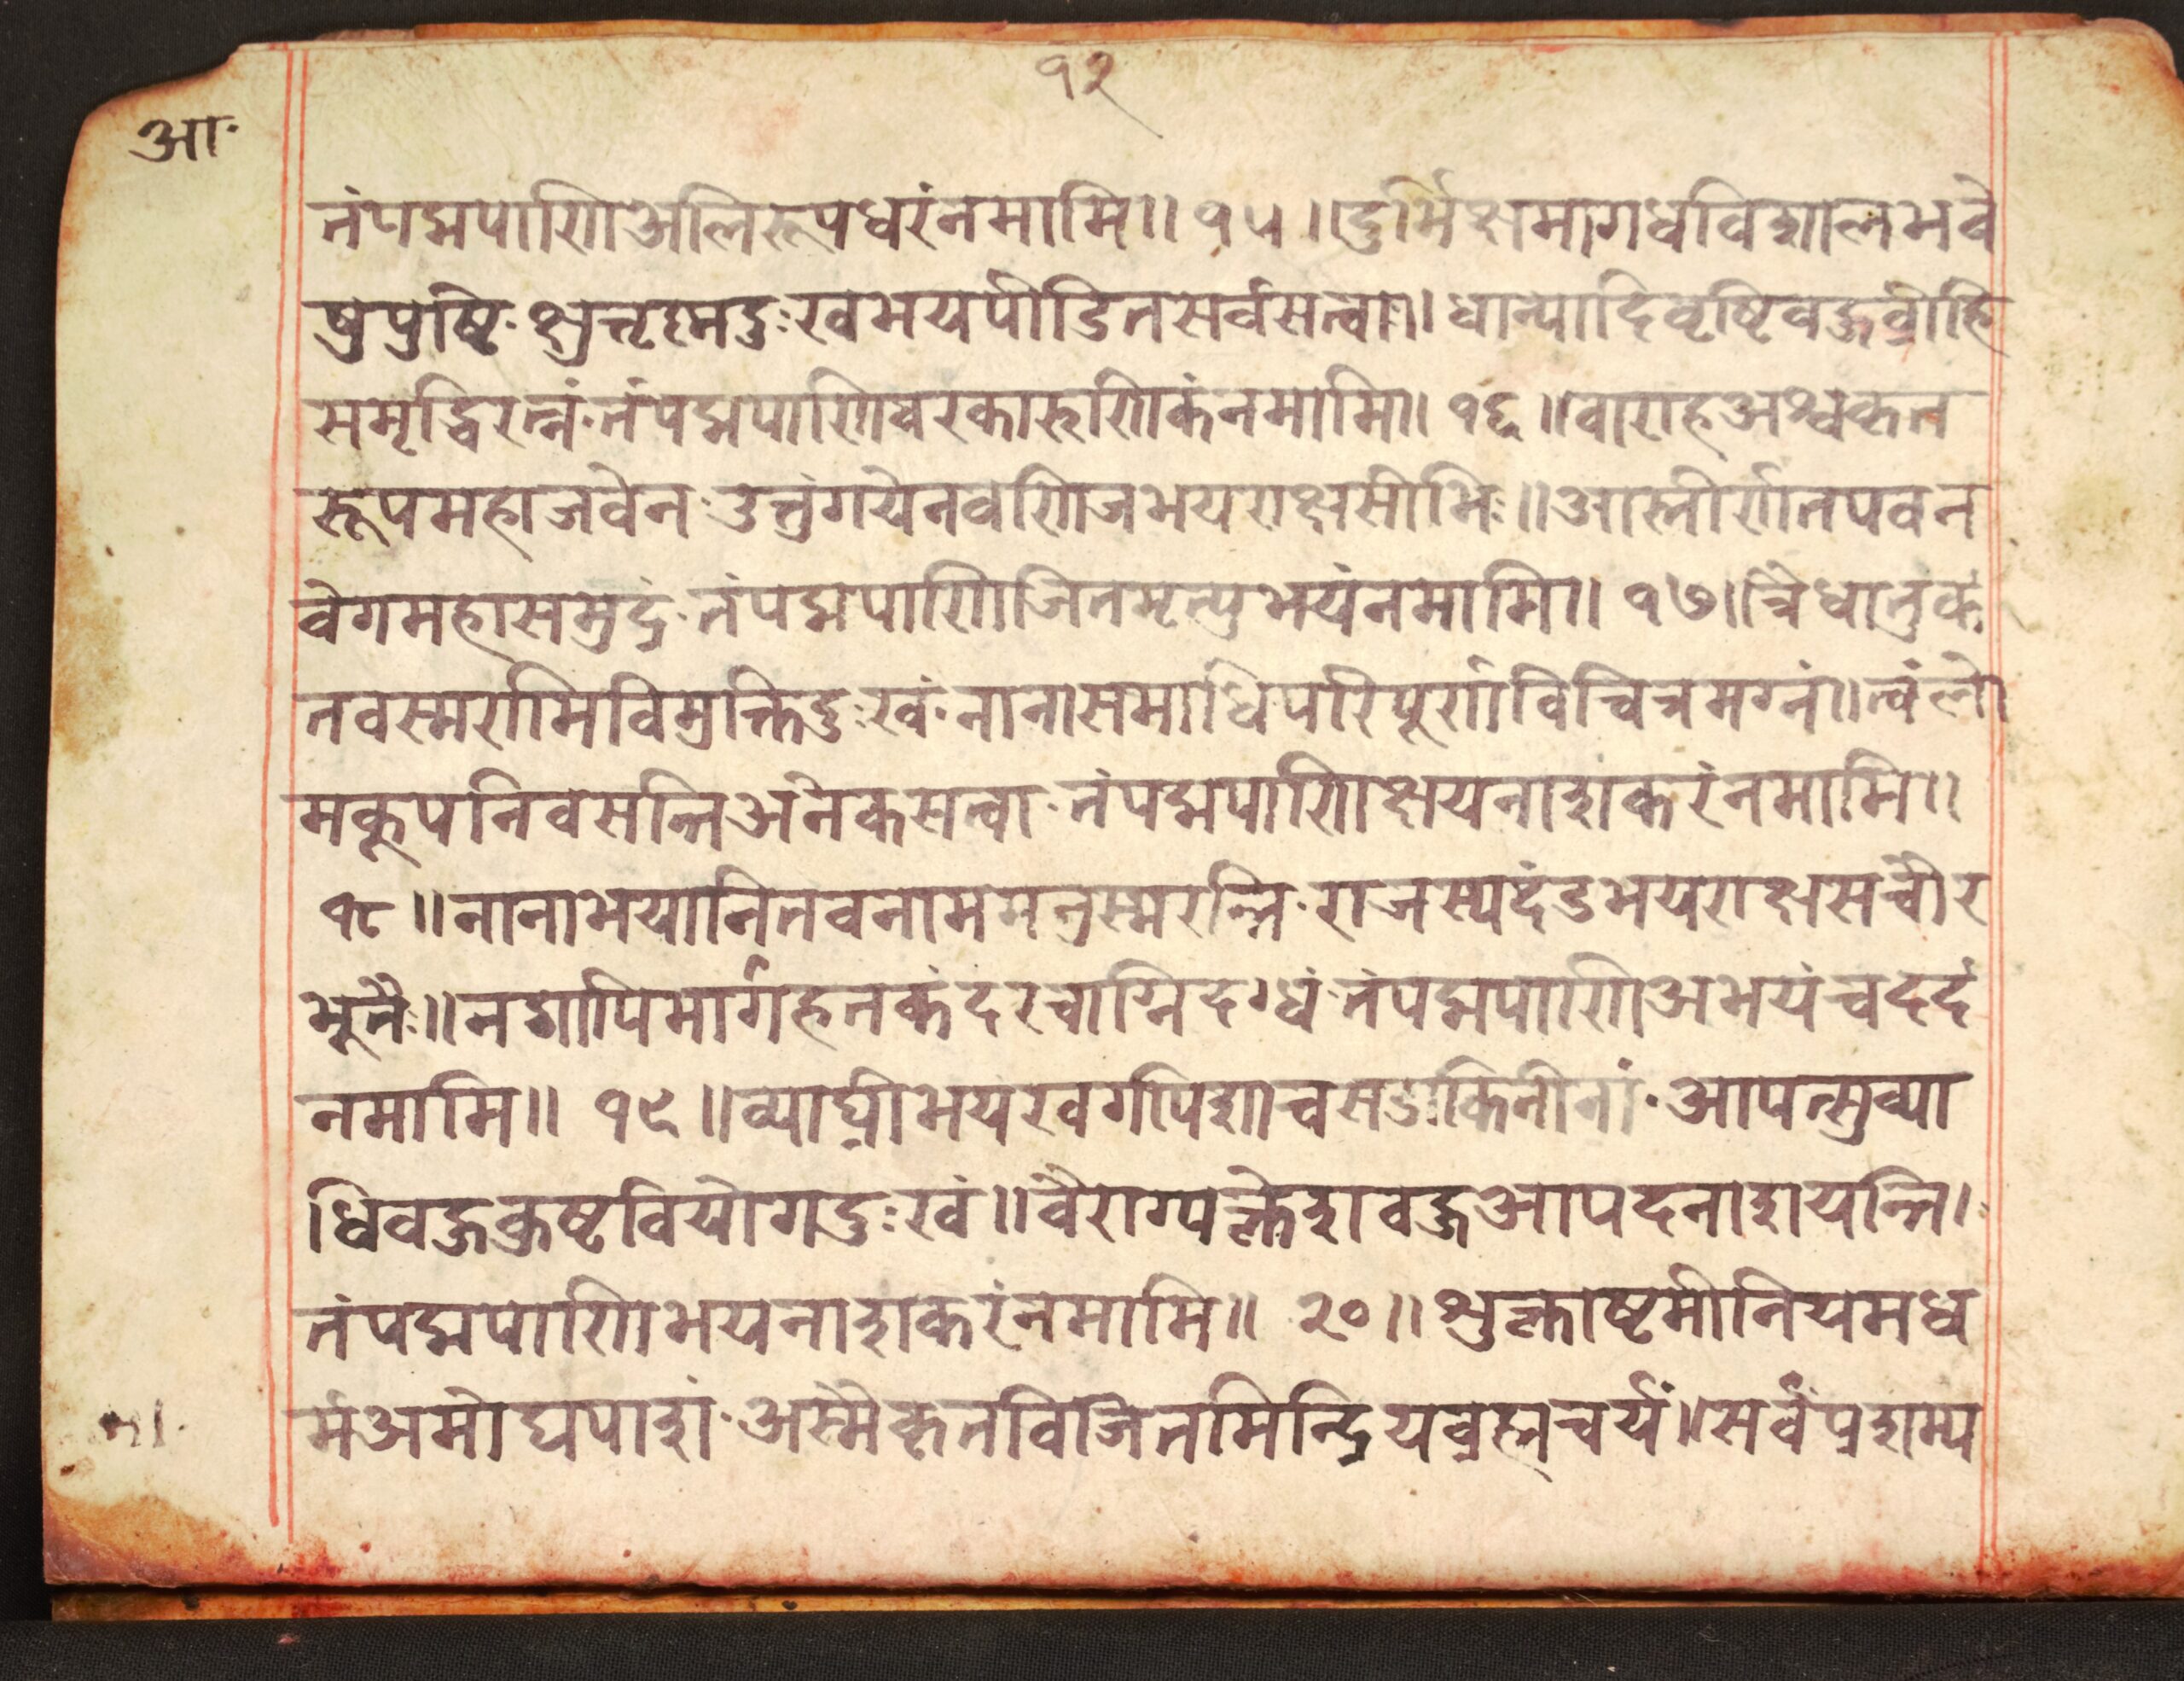 १२
आ॰
तंपद्मपाणिअलिरूपधरंनमामि॥ १५ ॥दुर्भिक्षमागधविशालभवे
षुपुष्टि·क्षुत्तृष्मदुःखभयपीडितसर्वसत्वाः॥धान्यादिवृष्टिवहुव्रीहि
समृद्धिरत्नं·तंपद्मपाणिवरकारुणिकंनमामि॥ १६ ॥वाराहअश्वकृत
रूपमहाजवेनःउत्तुंगयेनवणिजभयराक्षसीभिः॥आस्तीर्णातपवन
वेगमहासमुद्रं·तंपद्मपाणिजितमृत्युभयंनमामि॥ १७॥त्रैधातुकं
तवस्मरामिविमुक्तिदुःखं·नानासमाधिपरिपूर्णाविचित्रमग्नं॥त्वंलो
मकूपनिवसन्तिअनेकसत्वा·तंपद्मपाणिक्षयनाशकरंनमामि॥
१८ ॥नानाभयानितवनाममनुस्मरन्ति·राजस्यदंडभयराक्षसचौर
भूतैः॥नशापिमार्गहतकंदरचाग्निदग्धं·तंपद्मपाणिअभयंचददं
नमामि॥ १९ ॥व्याघ्रीभयंखर्गपिशाचसडाकिनीनां·आपत्सुव्या
धिवहुकष्टवियोगदुःखं॥वैराग्यक्लेशवहुआपदनाशयन्ति।
तंपद्मपाणिभयनाशकरंनमामि॥ २० ॥शुक्लाष्टमीनियमध
र्मअमोघपाशं·अस्मैकृतविजितमिन्द्रियव्रह्मचर्यं॥सर्वंप्रशम्य